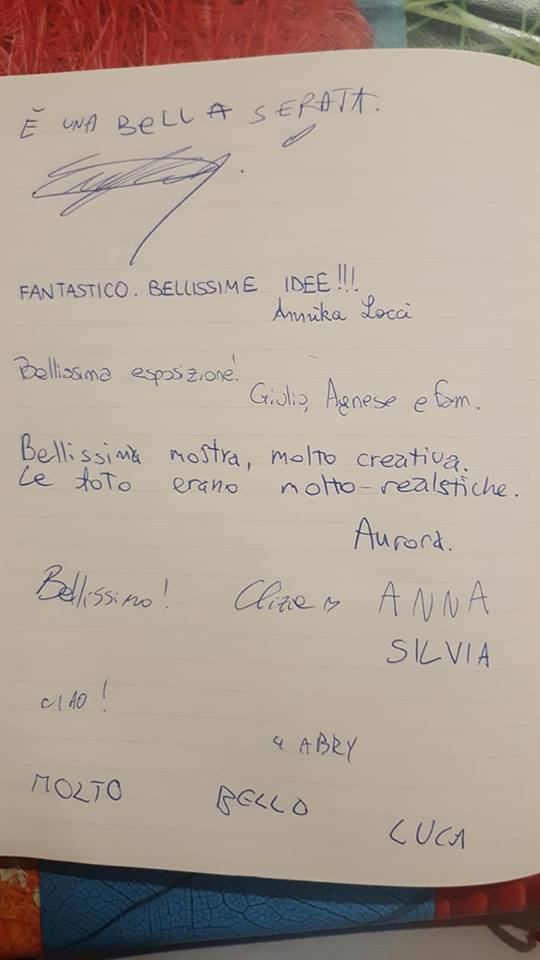 È UNA BELLA SERATA.
FANTASTICO. BELLISSIME IDEE!!!
Annika Locci
Bellissima esposizione!
Giulia, Agnese e fam.
Bellissima mostra, molto creativa.
Le foto erano molto-realstiche.
Aurora.
Bellissimo! ANNA
SILVIA
CIAO!
GABRY
MOLTO BELLO
LUCA